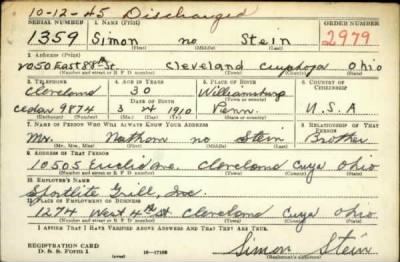 10-12-45 Discharged
SERIAL NUMBER 1. NAME (Print) ORDER NUMBER
1359 Simon no Stein 2979
(First) (Middle) (Last)
2. ADDRESS (Print)
2050 East 88th St. Cleveland Cuyahoga Ohio
(Number and street or R. F. D. number) (Town) (County) (State)
3. TELEPHONE 4. AGE IN YEARS 5. PLACE OF BIRTH 6. COUNTRY OF CITIZENSHIP
Cleveland 30 Williamsburg
DATE OF BIRTH
Cedar 9874 3 4 1910 Penn. U.S.A
(Exchange) (Number) (Mo.) (Day) (Yr.) (State or country)
7. NAME OF PERSON WHO WILL ALWAYS KNOW YOUR ADDRESS 8. RELATIONSHIP OF THAT PERSON
Mr. Nathan no Stein Brother
(Mr., Mrs., Miss) (First) (Middle) (Last)
9. ADDRESS OF THAT PERSON
10505 Euclid Ave. Cleveland Cuya Ohio
(Number and street or R. F. D. number) (Town) (County) (State)
10. EMPLOYER'S NAME
Sportlite Grill, Inc.
11. PLACE OF EMPLOYMENT OR BUSINESS
1274 West 4th St. Cleveland Cuya Ohio
(Number and street or R. F. D. number) (Town) (County) (State)
I AFFIRM THAT I HAVE VERIFIED ABOVE ANSWERS AND THAT THEY ARE TRUE.
REGISTRATION CARD
D. S. S. Form 1 (over) 16-17105 Simon Stein
(Registrant's signature)